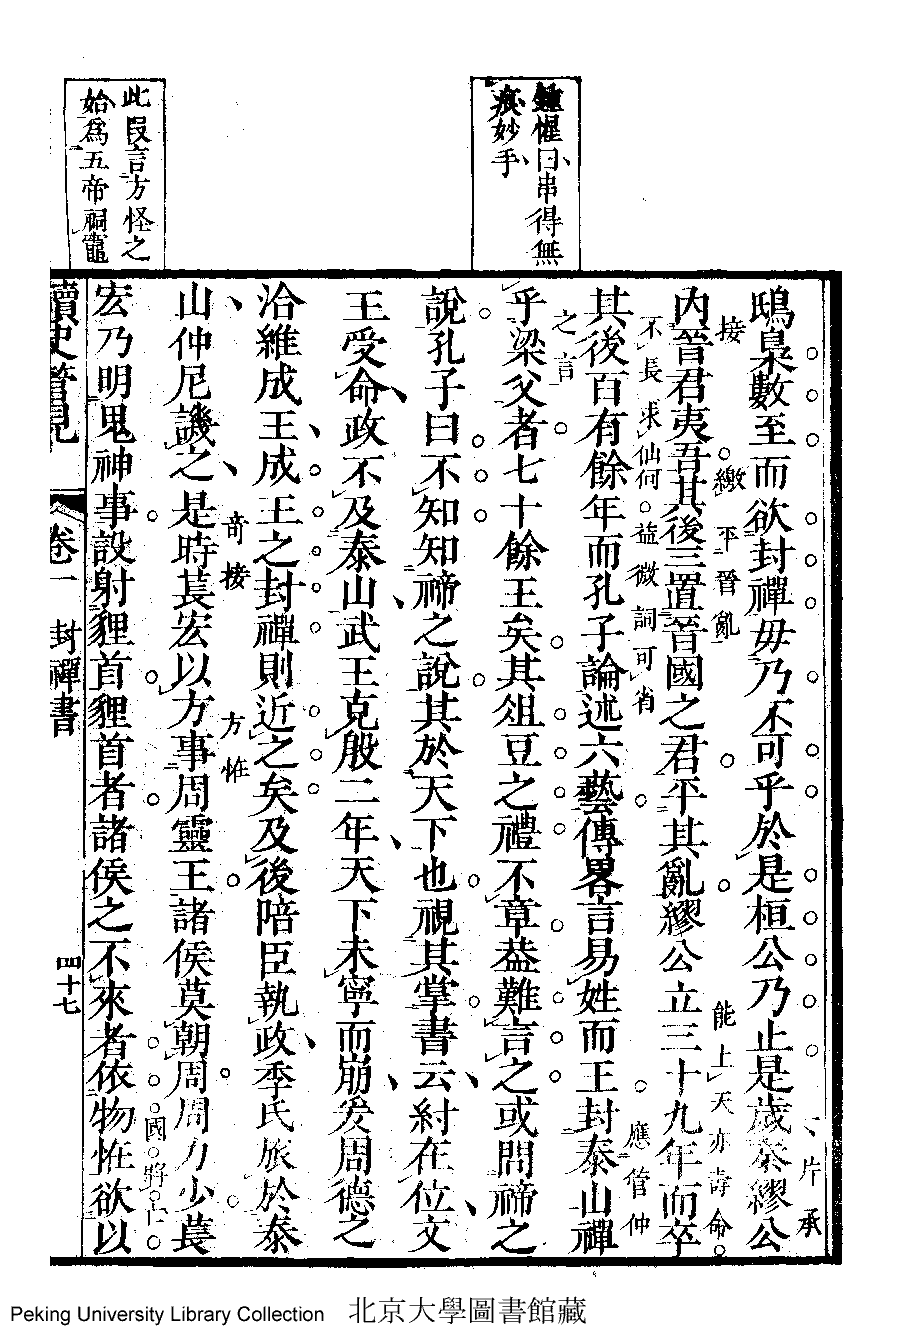 鍾惺曰串得無
痕妙手
此段言方怪之
始爲五帝祠竈
鴟梟數至而欲封禪毋乃不可乎於是桓公乃止是歲秦繆公
一片承
接
內晉君夷吾其後三置晉國之君平其亂繆公立三十九年而卒
繳平晉亂
能上天亦壽命
不長求仙何益微詞可省
應管仲
其後百有餘年而孔子論述六藝傳畧言易姓而王封泰山禪
之言
乎梁父者七十餘王矣其俎豆之禮不章蓋難言之或問禘之
說孔子曰不知知禘之說其於天下也視其掌書云紂在位文
王受命政不及泰山武王克殷二年天下未寧而崩爰周德之
洽維成王成王之封禪則近之矣及後陪臣執政季氏旅於泰
奇接
方恠
山仲尼譏之是時萇宏以方事周靈王諸侯莫朝周周力少萇
國將亡
宏乃明鬼神事設射貍首貍首者諸侯之不來者依物恠欲以
讀史管見
卷一
封禪書
四十七
Peking University Library Collection
北京大學圖書館藏